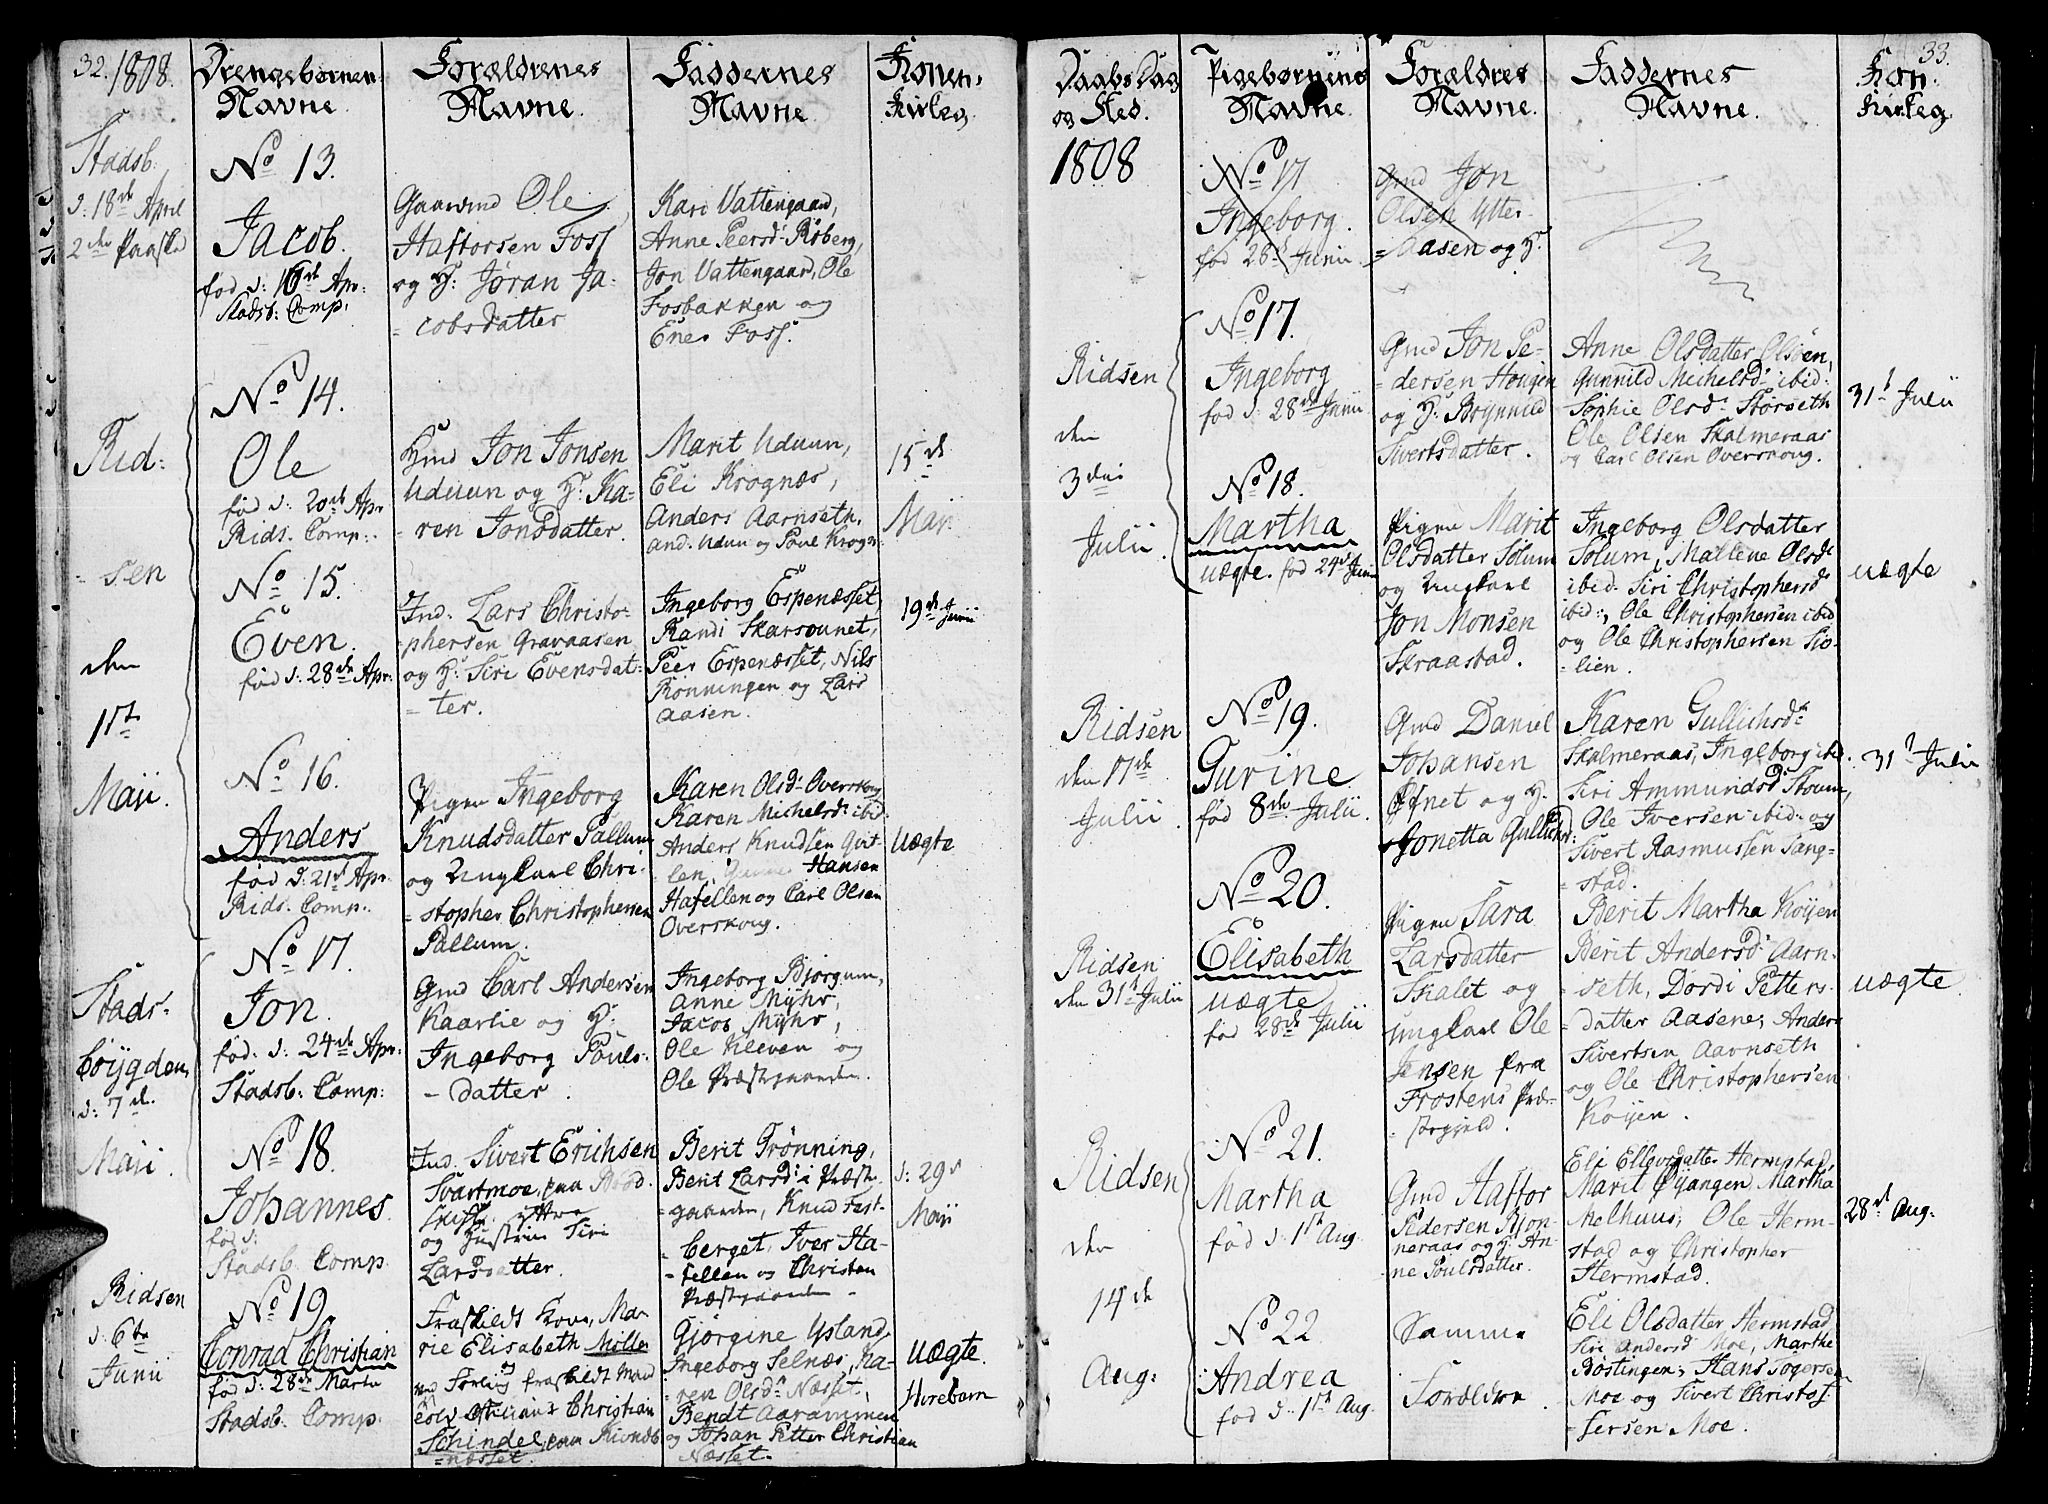 32. 1808.
Drengebørnenes
Navne.
Forældrenes
Navne.
Faddernes
Navne.
Konen
Kirkeg.
Stadsb.
d: 18de April
2den Paaskd
No 13.
Jacob.
fød d: 16de Apr:
Stadsb: Comp:
Gaardmd Ole
Haftorsen Foss
og H: Jøran Ja-
cobsdatter
Kari Vattengaard,
Anne Peersd: Røberg,
Jon Vattengaard, Ole
Fosbakken og
Ener Foss.
Rid:
sen
den
1ste
Maji.
No 14.
Ole
fød d: 20de Apr
Rids. Comp:
Hmd Jon Jonsen
Uduun og H: Ka-
ren Jonsdatter.
Marit Uduun,
Eli Krognæs,
Anders Aarnseth,
And. Uduu og Poul Krogn
15de
Maji
No 15.
Even.
fød d: 28de Apr.
Ind. Lars Christo-
phersen Gravaasen
og H: Siri Evensdat-
ter.
Ingeborg Espenæsset,
Randi Skarsounet,
Peer Espenæsset, Nils
Rønningen og Lars
Aasen.
19de Junii
No 16.
Anders
fød d: 21de Apr.
Rids. Comp:
Pigen Ingeborg
Knudsdatter Pallum
og Ungkarl Chri-
stopher Christophersen
Pallum.
Karen Olsd: Overskoug
Karen Michelsd: ibid.
Anders Knudsen Qvit-
len, Hansen
Hafellen og Carl Olsen
Overskoug.
Uægte
Stads-
bøygden,
d: 7de
Maji.
No 17.
Jon.
fød. d: 24de Apr:
Stadsb: Comp:
Gmd Carl Andersen
Kaarlie og H:
Ingeborg Pouls-
datter.
Ingeborg Bjørgum,
Anne Myhr,
Jacob Myhr,
Ole Kleven og
Ole Præstegaarden.
No 18.
Johannes.
fød d:
Stadsb. Comp.
Ind. Sivert Erichsen
Svartmoe, paa
og Hustrue Siri
Larsdatter.
Berit Trønning,
Berit Larsd: i Præste-
gaarden, Knud Fest-
berget, Iver Ha-
fellen og Christen
Præstegaarden
d: 29de
Maji
Ridsen
d: 6te
Junii
No 19
Conrad Christian
fød d: 28de Martii
Stadsb. Comp.
Fraskildt Kone, Ma-
rie Elisabeth Møller
og Christian
Schindel
næsset.
Gjørgine Ysland,
Ingeborg Selnæs, Ka-
ren Olsd: Næsset,
Bendt Aarammen
og Johan Petter Christian
Næsset.
Uægte.
Horebarn
33.
Daabs Dag
og Sted.
Pigebørnenes
Navne.
Forældres
Navne.
Faddernes
Navne.
Kon.
Kirkeg.
1808
No 17
Ingeborg.
fød 28de Junii
Gmd Jon
Olsen Ytter-
Aasen og H:
Ridsen
den
3die
Julii.
No 17.
Ingeborg
fød d: 28de Junii
Gmd Jon Pe-
dersen Hougen
og H: Brynnild
Sivertsdatter.
Anne Olsdatter Olsøen,
Gunnild Michelsd: ibid:
Sophie Olsd: Størseth
Ole Olsen Skalmeraas
og Carl Olsen Overskoug.
31te Julii
No 18.
Martha
uægte. fød 24de Junii
Pigen Marit
Olsdatter Solum
og Ungkarl
Jon Monsen
Skraastad.
Ingeborg Olsdatter
Solum, Mallene Olsd:
ibid. Siri Christophersd:
ibid:, Ole Christophersen ibid
og Ole Christophersen Sio-
lien.
uægte
Ridsen
den 17de
Julii.
No 19.
Gurine
fød 8de Julii.
Gmd Daniel
Johansen
Øfnet og H.
Jonetta Gullichsd:
Karen Gullichsd:
Skalmeraas, Ingeborg ibid.
Siri Ammundsd: Stoum,
Ole Iversen ibid: og
Sivert Rasmussen Sang-
stad.
31te Julii
Ridsen
den 31te Julii
No 20.
Elisabeth
uægte
fød 28de Julii
Pigen Sara
Larsdatter
Skalet og
Ungkarl Ole
Jensen fra
Frostens Præ-
stegjeld.
Berit Martha Køyen
Berit Andersd: Aarn-
seth, Dordi Petters-
datter Aasene, Anders
Sivertsen Aarnseth
og Ole Christophersen
Køyen.
uægte
Ridsen
den
14de
Aug:
No 21.
Martha
fød d: 1ste Aug.
Gmd Haftor
Pedersen Bjøn-
neraas og H: An-
ne Poulsdatter.
Eli Ellevsdatter Hermstad,
Marit Øyangen, Martha
Melhuus, Ole Herm-
stad og Christopher
Hermstad.
28de Aug.
No 22
Andrea
fød d. 1ste Aug.
Samme
Forældre.
Eli Olsdatter Hermstad
Siri Andersd: Moe, Marthe
Røstingen, Hans Jogersen
Moe og Sivert Christof-
fersen Moe.